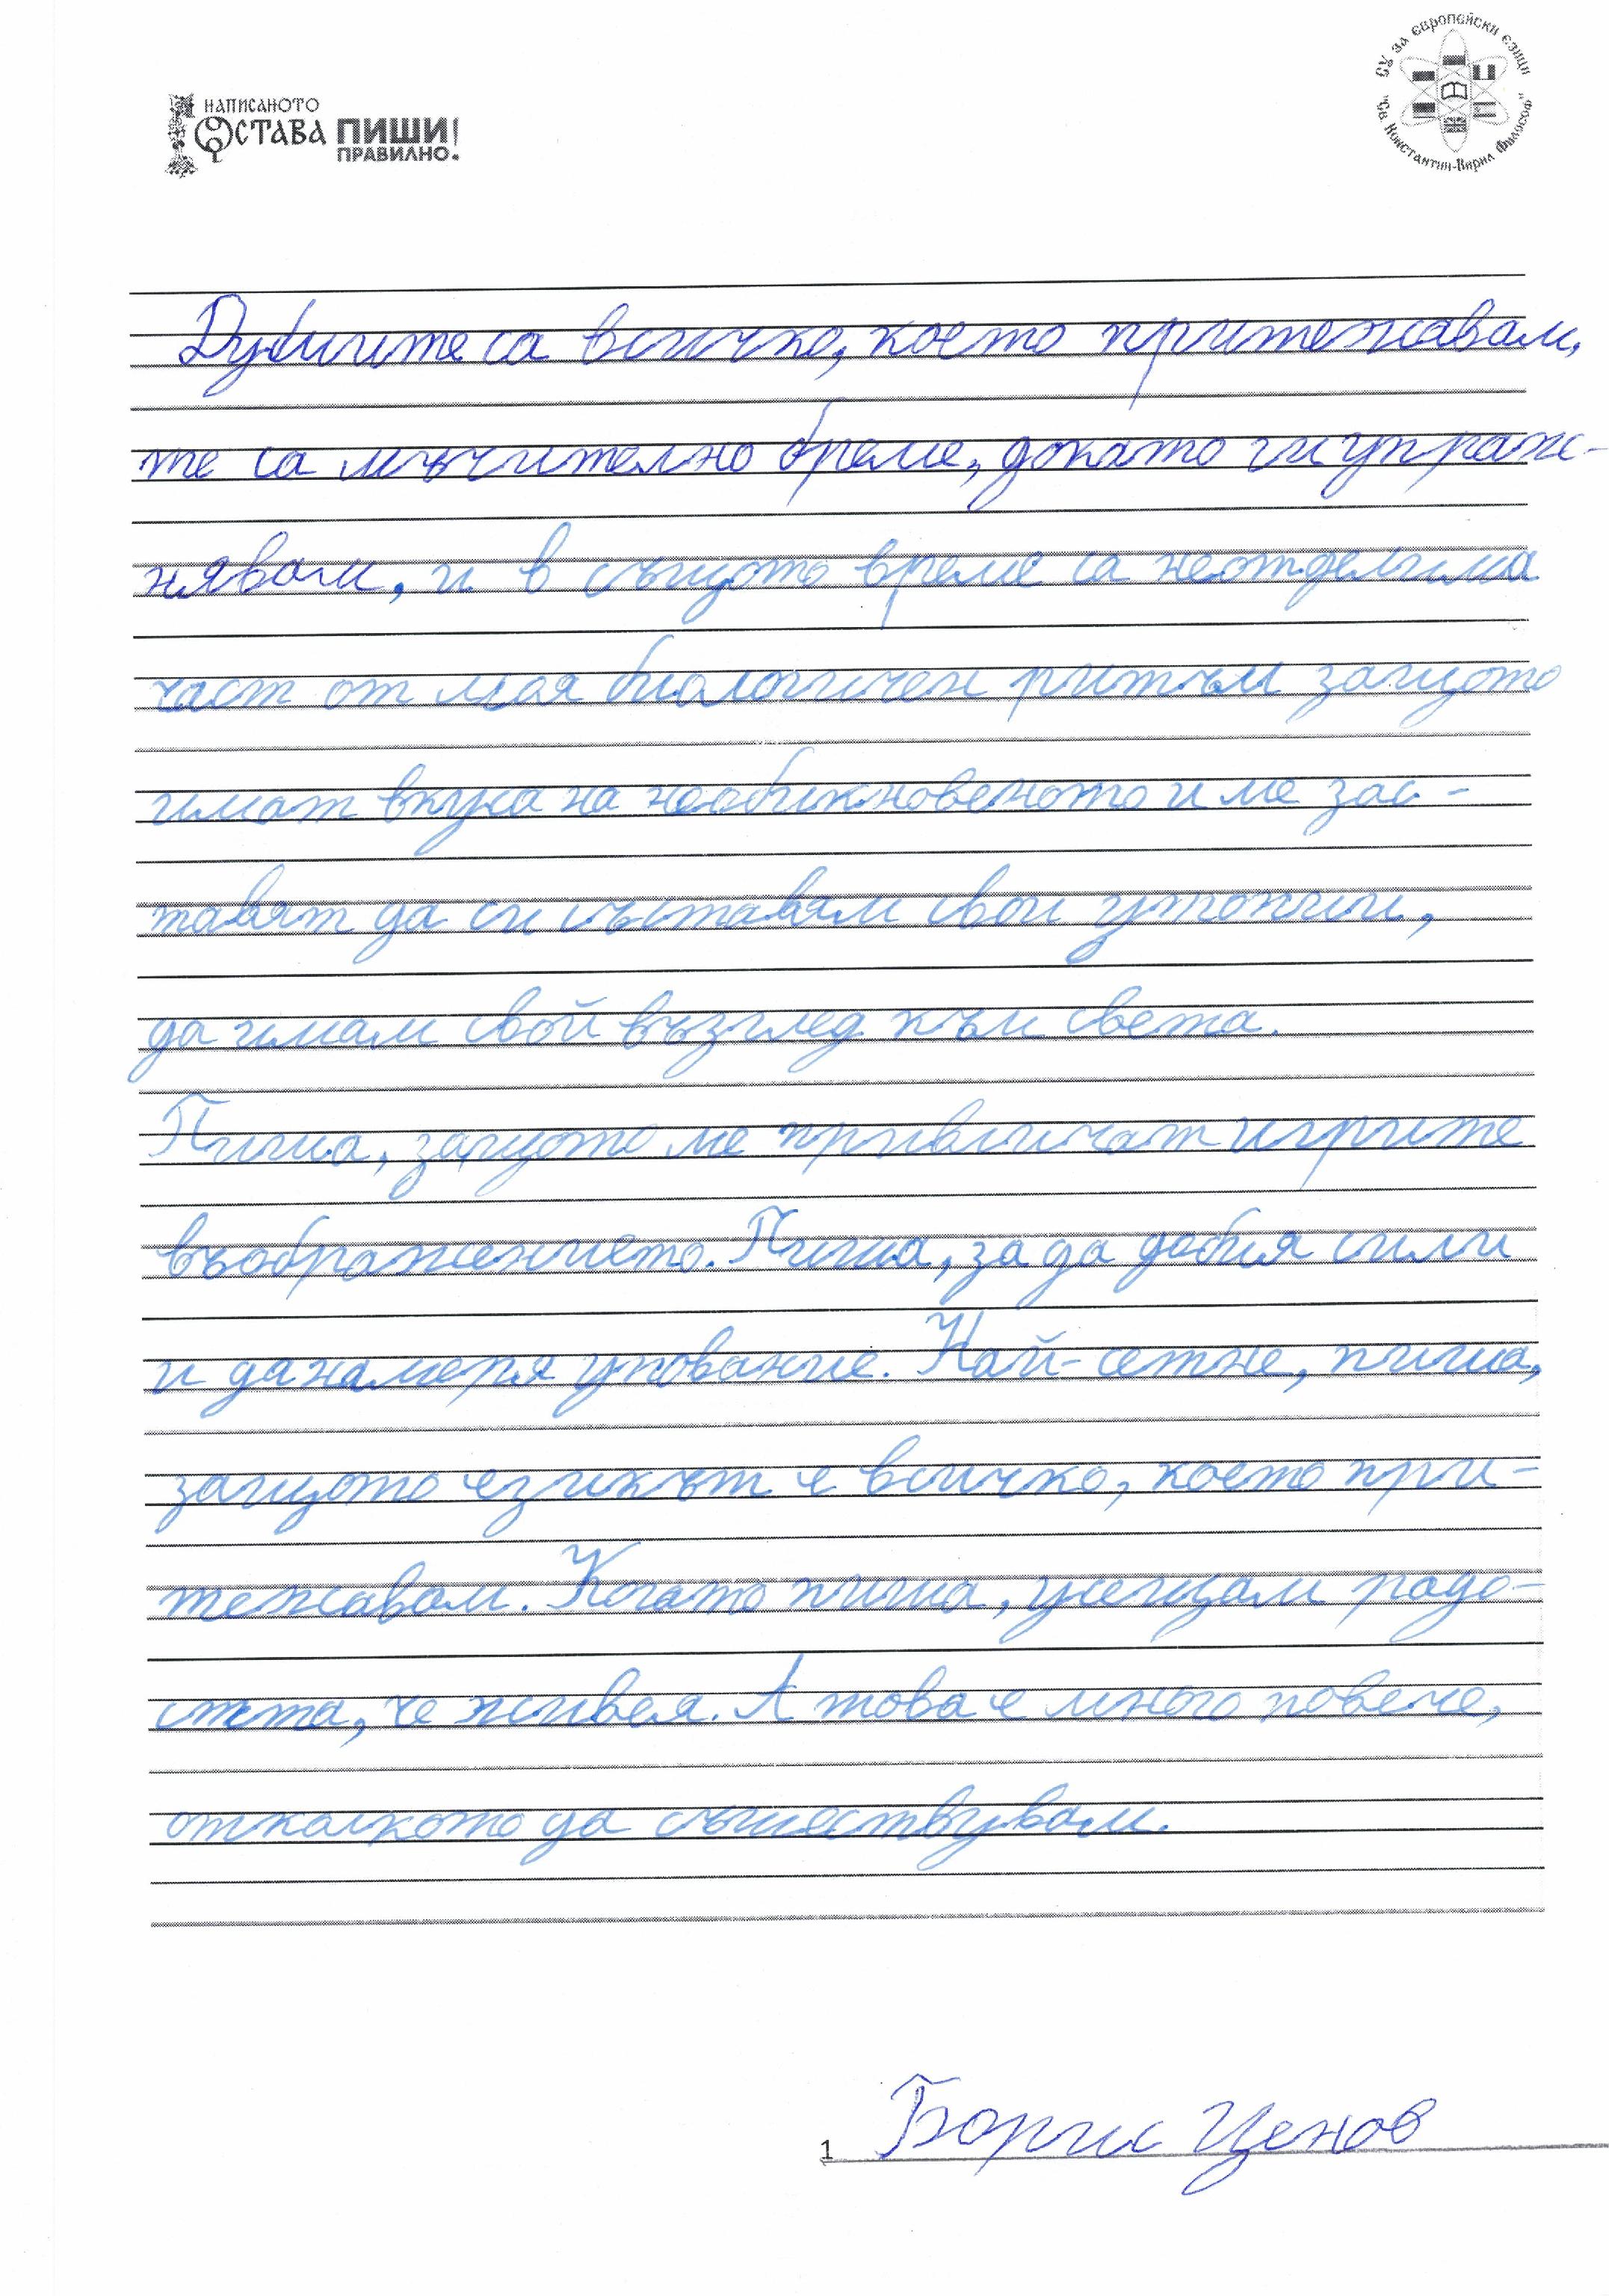 НАПИСАНОТО
ОСТАВА ПИШИ
ПРАВИЛНО!
СУ за европейски езици
"Св. Константин-Кирил Философ"
Думите са всичко, което притежавам,
те са мъчително бреме, докато ги упраж-
нявам, и в същото време са неотделима
част от моя биологичен ритъм защото
имат вкуса на необикновеното и ме зас-
тавят да си съставям свои утопии,
да имам свой възглед към света.
Пиша, защото ме привличат игрите
въображението. Пиша, за да добия сили
и да намеря упование. Най-сетне, пиша,
защото езикът е всичко, което при-
тежавам. Когато пиша, усещам радо-
стта, че живея. А това е много повече,
отколкото да съществувам.
1 Борис Ценов